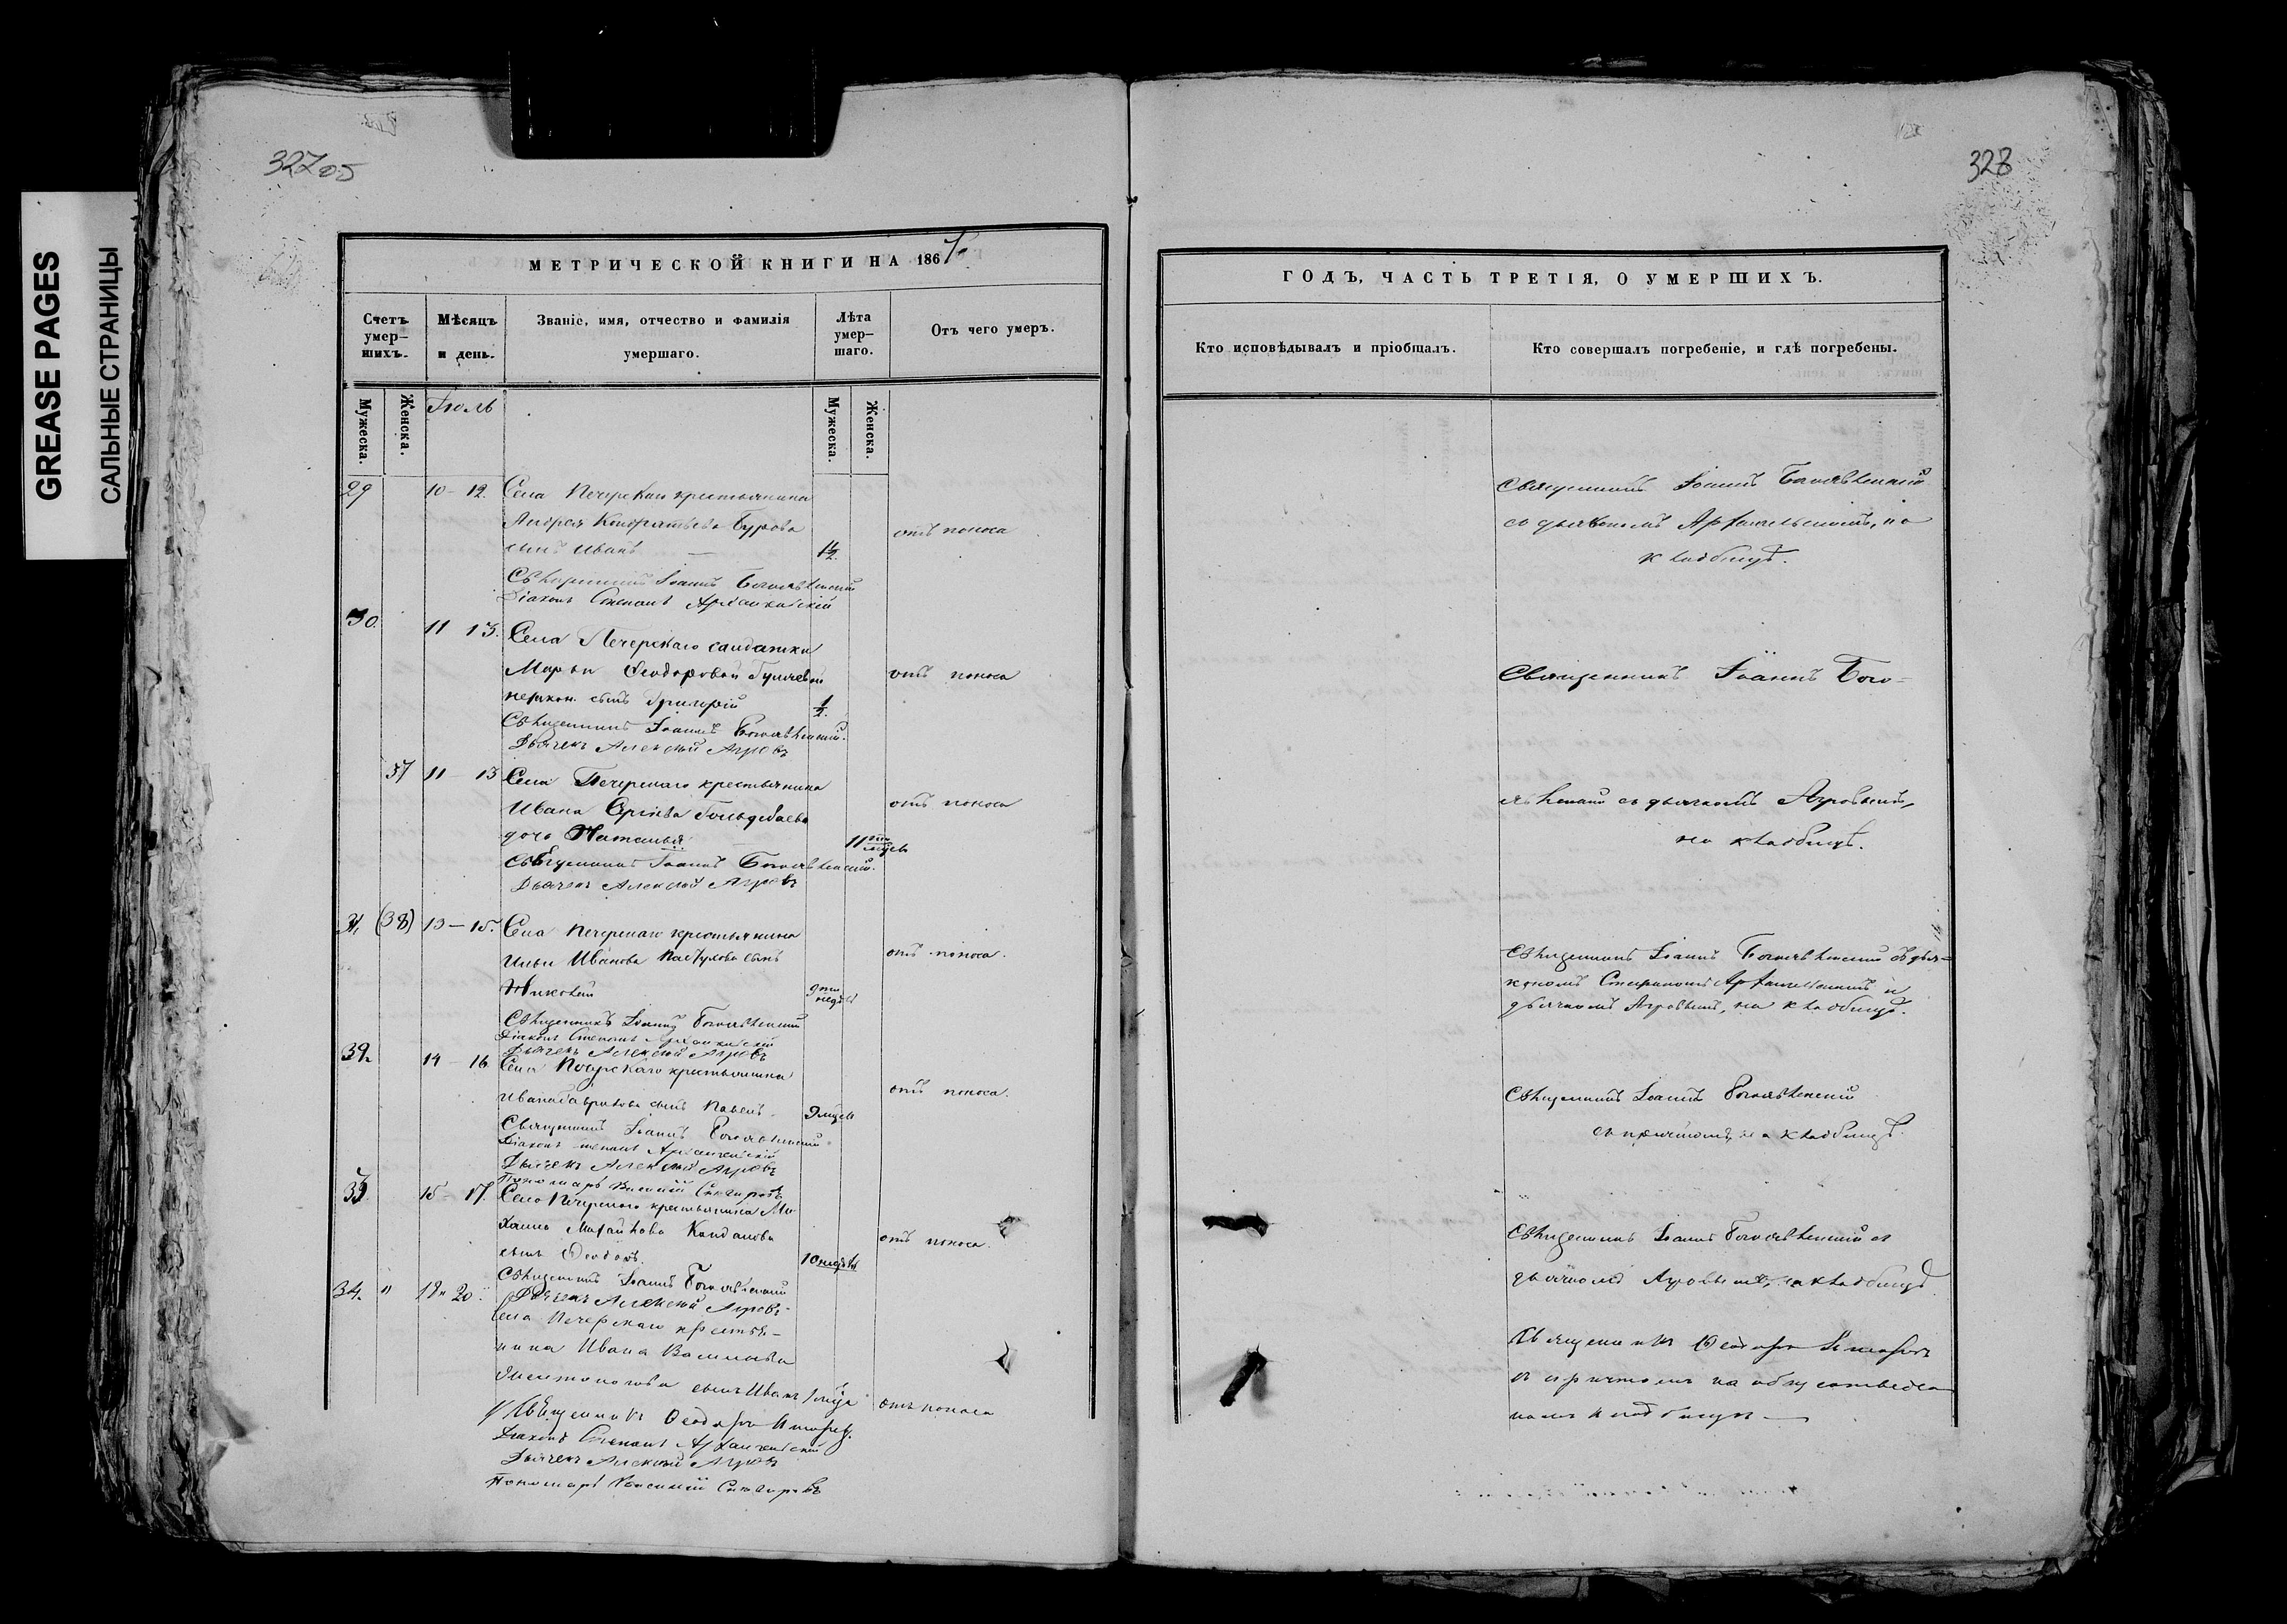 GREASE PAGES
САЛЬНЫЕ СТРАНИЦЫ
327 об
328
МЕТРИЧЕСКОЙ КНИГИ НА 186
Счетъ умер-шихъ.
Мѣсяцъ и день.
Званіе, имя, отчество и фамилія умершаго.
Лѣта умер-шаго.
Отъ чего умеръ.
Мужеска.
Женска.
Іюль
Мужеска.
Женска.
29
10 - 12
Села Печерскаго крестьянина
Андрея Кондратьева Бурова
сынъ Иванъ
1½
отъ поноса
Священникъ Іоаннъ Богоявленский
Діаконъ Степанъ Архангельскій
30.
11 13.
Села Печерскаго солдатки
Марьи Феодоровой
незакон. сынъ Григорій
½
отъ поноса
Священникъ Іоаннъ Богоявленский.
Дьячекъ Алексѣй Агровъ
37
11 - 13
Села Печерскаго крестьянина
Ивана
дочь Наталья
11
отъ поноса
Священникъ Іоаннъ Богоявленский.
Дьячекъ Алексѣй Агровъ
31
(38)
13 - 15.
Села Печерскаго крестьянина
Ильи Иванова Пастухова сынъ
Николай
9ти недѣль
отъ поноса.
Священникъ Іоаннъ Богоявленский
Діаконъ Степанъ Архангельскій
Дьячекъ Алексѣй Агровъ
14 - 16
Села Печерскаго крестьянина
Ивана сынъ Павелъ.
отъ поноса.
Священникъ Іоаннъ Богоявленский
Діаконъ Степанъ Архангельскій
Дьячекъ Алексѣй Агровъ
Пономарь Василій
33.
15 - 17.
Села Печерскаго крестьянина Ми-
хаила
сынъ
10 недѣль
отъ поноса.
Священникъ Іоаннъ Богоявленский
Дьячекъ Алексѣй Агровъ
34.
"
18 " 20
Села Печерскаго крестья-
нина Ивана Васильева
сынъ Иванъ
отъ поноса
Священникъ Феодоръ
Діаконъ Степанъ Архангельскій
Дьячекъ Алексѣй Агровъ
Пономарь Василій
ГОДЪ, ЧАСТЬ ТРЕТІЯ, О УМЕРШИХЪ.
Кто исповѣдывалъ и пріобщалъ.
Кто совершалъ погребеніе, и гдѣ погребены.
Священникъ Іоаннъ Богоявленский
съ дьякономъ Архангельскимъ, на
кладбищѣ.
Священникъ Іоаннъ Бого-
явленский съ дьячкомъ Агровымъ,
на кладбищѣ.
Священникъ Іоаннъ Богоявленский съ дья-
кономъ Стефаномъ Архангельскимъ и
дьячкомъ Агровымъ, на кладбищѣ.
Священникъ Іоаннъ Богоявленский
съ причтомъ, на кладбищѣ.
Священникъ Іоаннъ Богоявленский съ
дьячкомъ Агровымъ, на кладбищѣ
Священникъ Феодоръ
съ причтомъ на общественно
номъ кладбищѣ